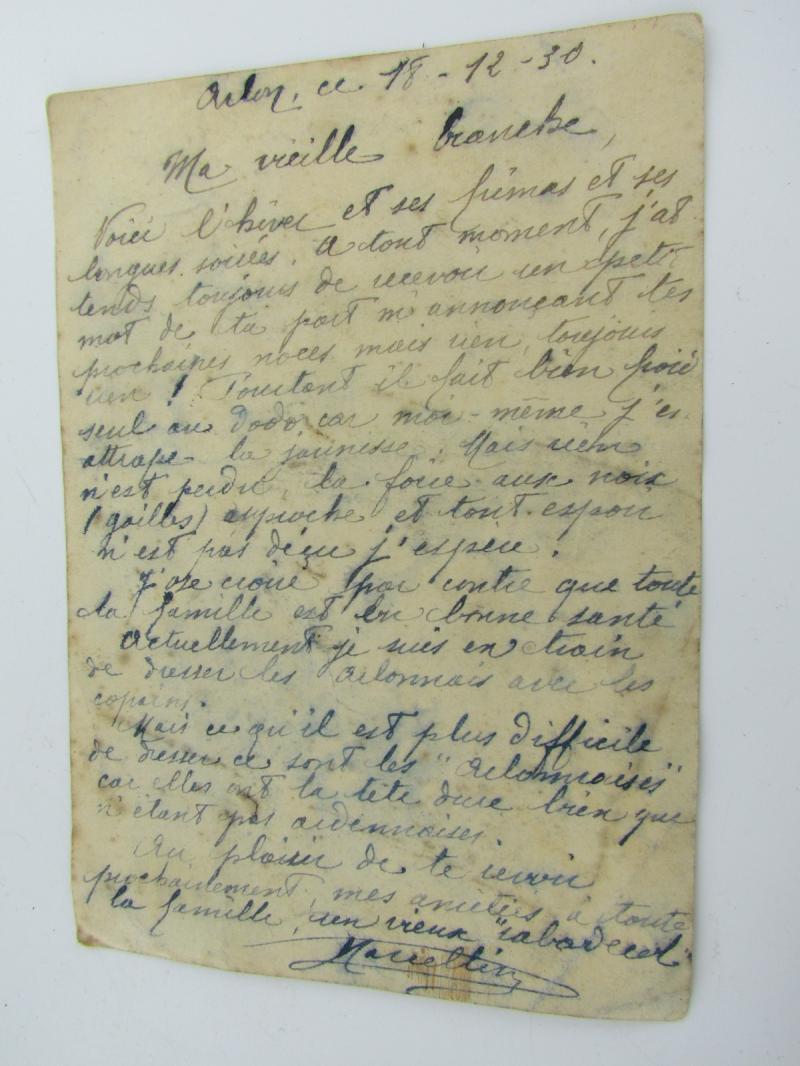 Arlon, ce 18-12-30.
Ma vieille branche,
Voici l'hiver et ses frimas et ses
longues soirées. A tout moment, j'at
tends toujours de recevoir un petit
mot de ta part m'annonçant tes
prochaines noces mais rien, toujours
rien! Pourtant il fait bien froid
seul au dodo car moi-même j'en
attrape la jaunisse. Mais rien
n'est perdu, la foire aux noix
(gailles) approche et tout espoir
n'est pas déçu j'espère.
J'ose croire par contre que toute
la famille est en bonne santé
Actuellement je suis en train
de dresser les arlonnais avec les
copains.
Mais ce qu'il est plus difficile
de dresser ce sont les "Arlonnaises"
car elles ont la tête dure bien que
n'étant pas ardennaises.
Au plaisir de te revoir
prochainement, mes amitiés à toute
la famille, un vieux
Marcellin